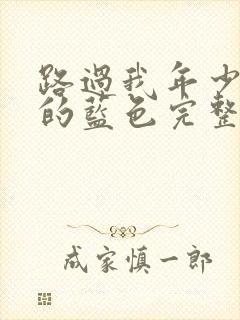 路過我年少
的藍色完整
成家慎一郎